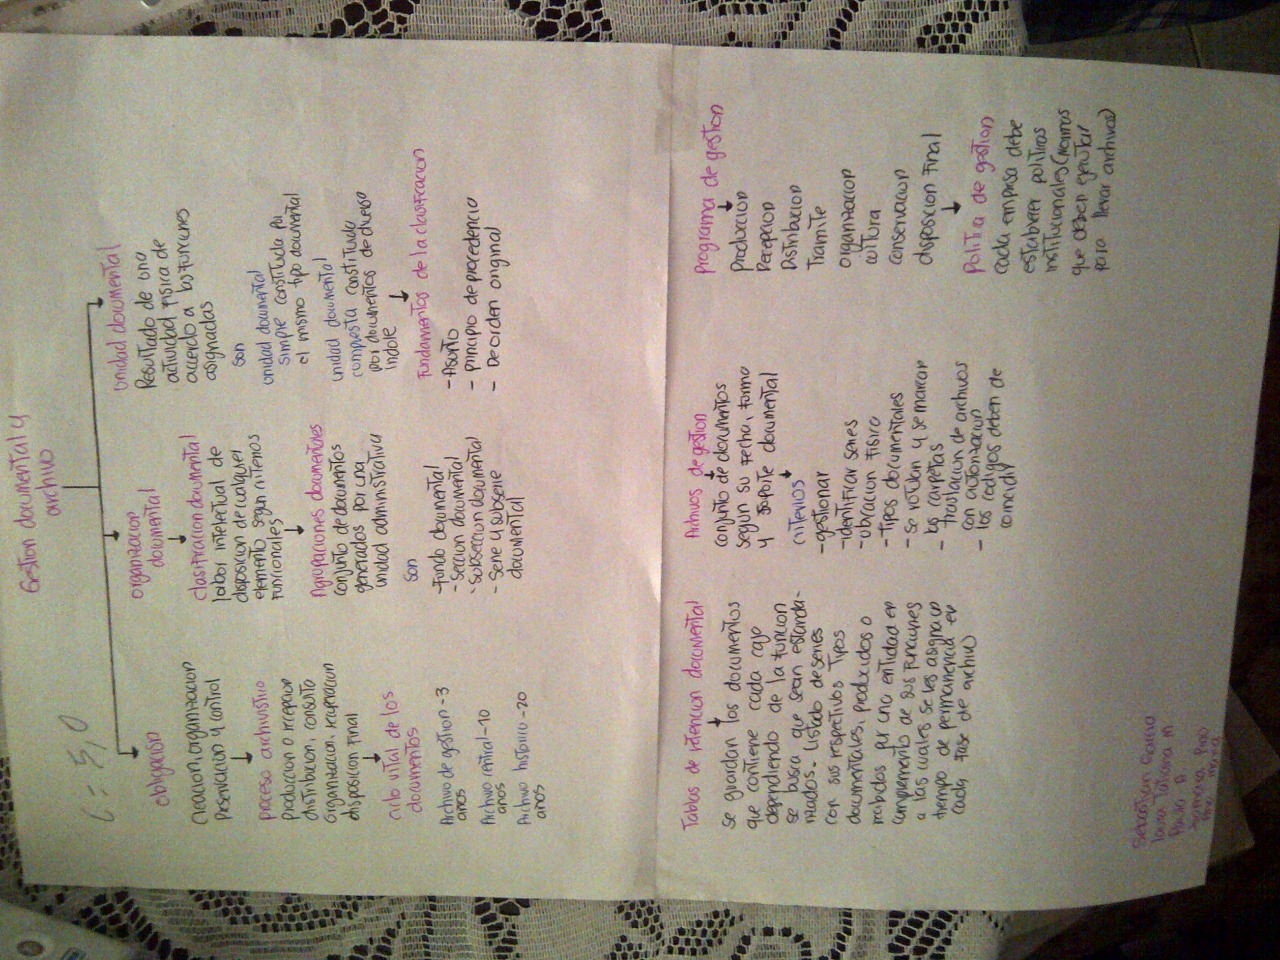 Gestion documental y
archivo
C = 5,0
Obligación
creacion, organizacion
preservacion y control
proceso archivistico
produccion o recepcion
distribucion, consulta
organizacion, recuperacion
disposicion final
ciclo vital de los
documentos
Archivo de gestion -3
años
Archivo central -10
años
Archivo historico -20
años
organizacion
documental
clasificacion documental
labor intelectual de
disposicion de cualquier
elemento segun criterios
funcionales
Agrupaciones documentales
conjunto de documentos
generados por una
unidad administrativa
son
-Fondo documental
- Seccion documental
- Subseccion documental
- Serie y subserie
documental
Unidad documental
Resultado de una
actividad fisica de
acuerdo a las funciones
asignadas
son
unidad documental
simple constituida por
el mismo tipo documental
unidad documental
compuesta constituida
por documentos de diversa
indole
Fundamentos de la clasificacion
- Asunto
- principio de procedencia
- De orden original
Tablas de retencion documental
Se guardan los documentos
que contiene cada caja
dependiendo de la funcion
se busca que sean estanda-
rizados. Listado de series
con sus respectivos tipos
documentales, producidos o
recibidos por una entidad en
cumplimiento de sus funciones
a las cuales se les asigna un
tiempo de permanencia en
cada fase de archivo
Archivos de gestion
conjunto de documentos
segun su fecha, forma
y soporte documental
criterios
- gestionar
- identificar series
- ubicacion fisica
- tipos documentales
- se rotulan y se marcan
las carpetas
- traslacion de archivos
con autorizacion
- los codigos deben de
coincidir
Programa de gestion
produccion
Recepcion
Distribucion
Tramite
organizacion
conservacion
disposicion final
Politica de gestion
cada empresa debe
establecer politicas
institucionales (normas
que deben ejecutar
para llevar archivos)
Sebastian Garcia
Laura Tatiana M
Paula A.